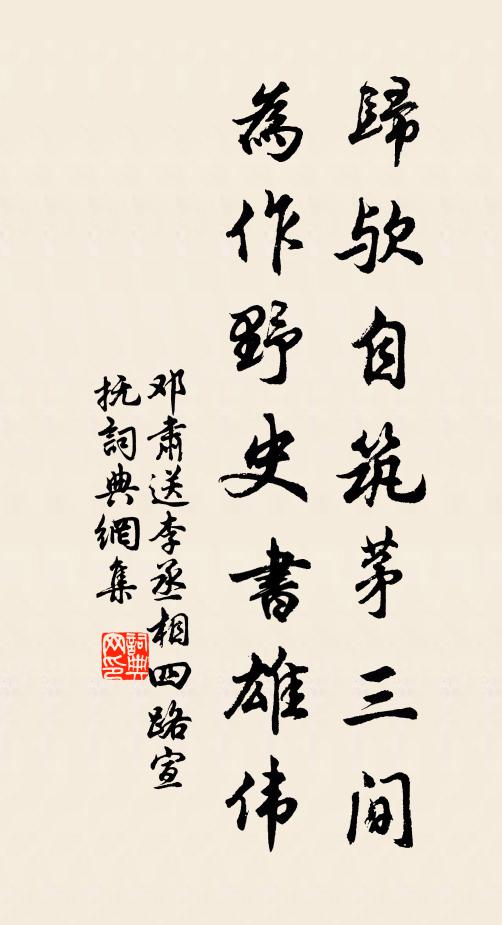 歸欤自筑茅三间
為作野史書雄伟
邓肅送李丞相四路宣
抚詞典網集
詞典网印